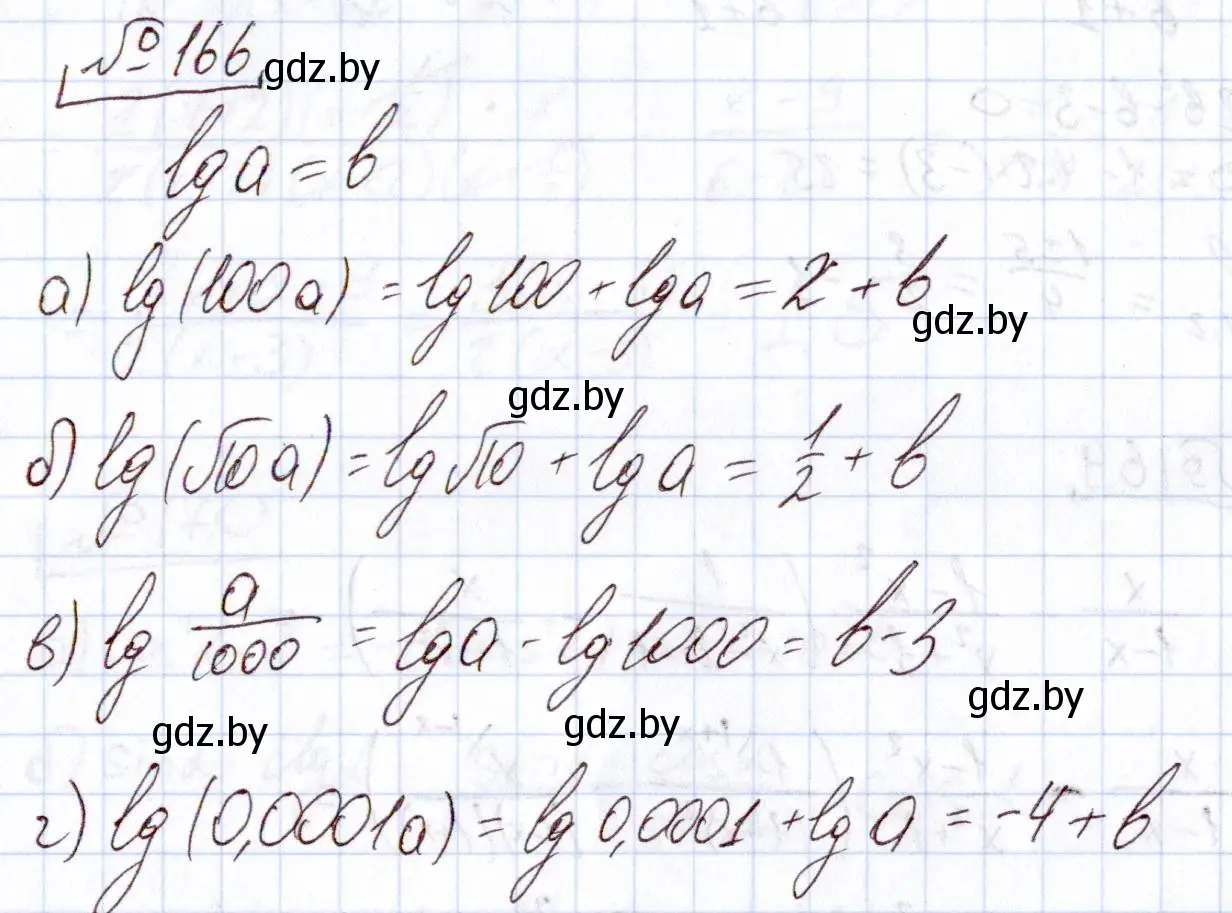 № 166 gdz.by
lg a = b
а) lg(100a) = lg 100 + lg a = 2 + b
gdz.by
gdz.by
б) lg(√10 a) = lg √10 + lg a = 1/2 + b
в) lg a/1000 = lg a - lg 1000 = b - 3
gdz.by gdz.by gdz.by
г) lg(0,0001a) = lg 0,0001 + lg a = -4 + b